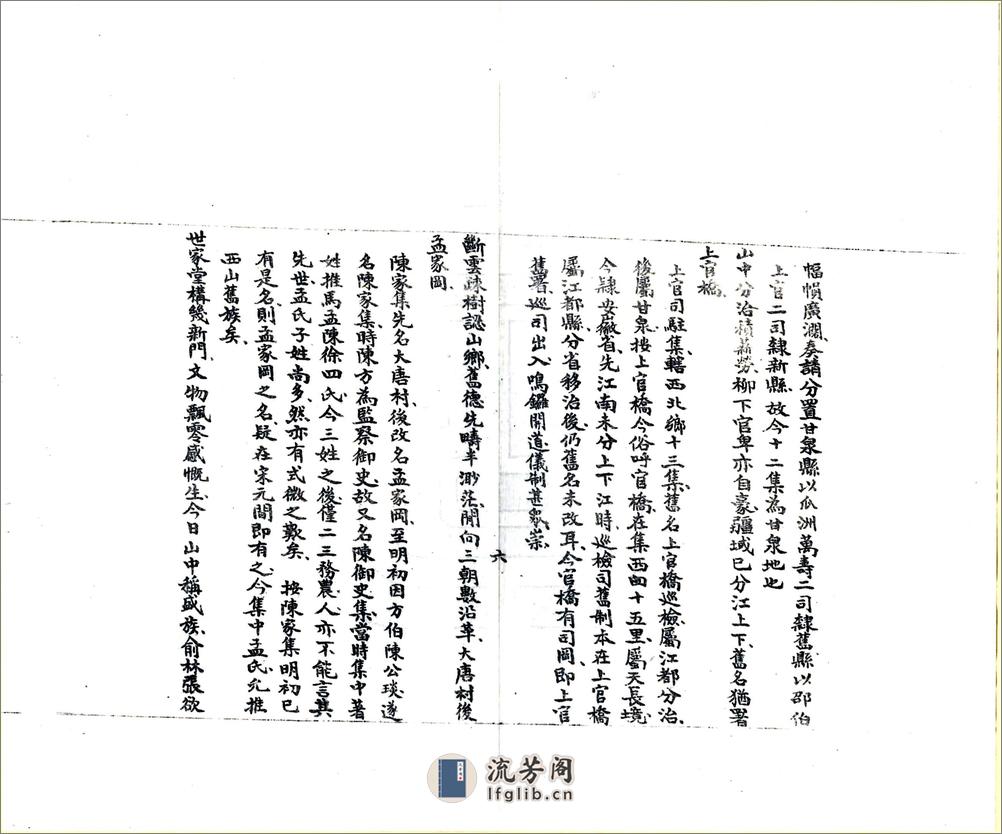 幅幀廣濶奏請分置甘泉縣以瓜洲萬壽二司隸舊縣以邵伯
上官二司隸新縣故今十二集為甘泉地也
山中分治積薪勞柳下官卑亦自豪疆域已分江上下舊名猶署
上官橋
上官司駐集轄西北鄉十三集舊名上官橋巡檢屬江都分治
後屬甘泉按上官橋今俗呼官橋在集西四十五里屬天長境
今隸安徽省先江南未分上下江時巡檢司舊制本在上官橋
屬江都縣分省移治後仍舊名未改耳今官橋有司岡即上官
舊署巡司出入鳴鑼開道儀制甚崇
六
斷雲疎樹認山鄉舊德先疇半渺茫閒向三朝數沿革大唐村後
孟家岡
陳家集先名大唐村後改名孟家岡至明初因方伯陳公琰遂
名陳家集時陳方為監察御史故又名陳御史集當時集中著
姓推馬孟陳徐四氏今三姓之後僅二三務農人亦不能言其
先世孟氏子姓尚多然亦有式微之歎矣 按陳家集明初已
有是名則孟家岡之名疑在宋元間即有之今集中孟氏允推
西山舊族矣
世家堂構幾新門文物飄零感慨生今日山中稱盛族俞林張欲
流芳阁
lfglib.cn